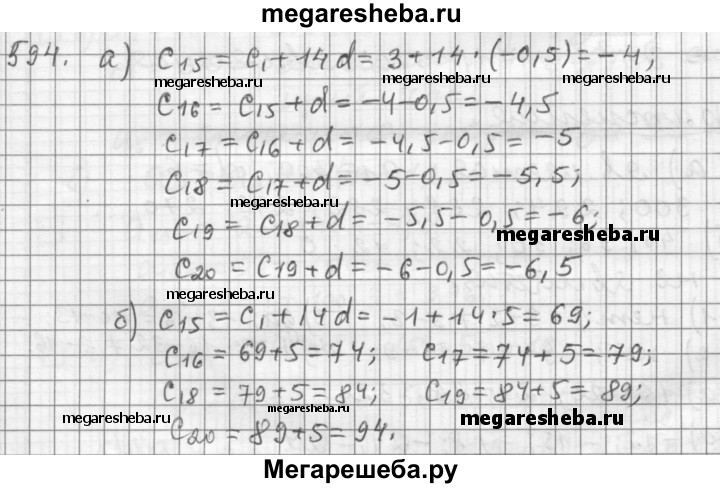 megaresheba.ru
594. а) C15 = C1 + 14d = 3 + 14 · (-0,5) = -4;
megaresheba.ru
megaresheba.ru
C16 = C15 + d = -4 - 0,5 = -4,5
C17 = C16 + d = -4,5 - 0,5 = -5
C18 = C17 + d = -5 - 0,5 = -5,5;
megaresheba.ru
C19 = C18 + d = -5,5 - 0,5 = -6;
megaresheba.ru
C20 = C19 + d = -6 - 0,5 = -6,5
megaresheba.ru
б) C15 = C1 + 14d = -1 + 14·5 = 69;
C16 = 69 + 5 = 74; C17 = 74 + 5 = 79;
C18 = 79 + 5 = 84; C19 = 84 + 5 = 89;
megaresheba.ru
megaresheba.ru
megaresheba.ru
C20 = 89 + 5 = 94.
Мегарешеба.ру